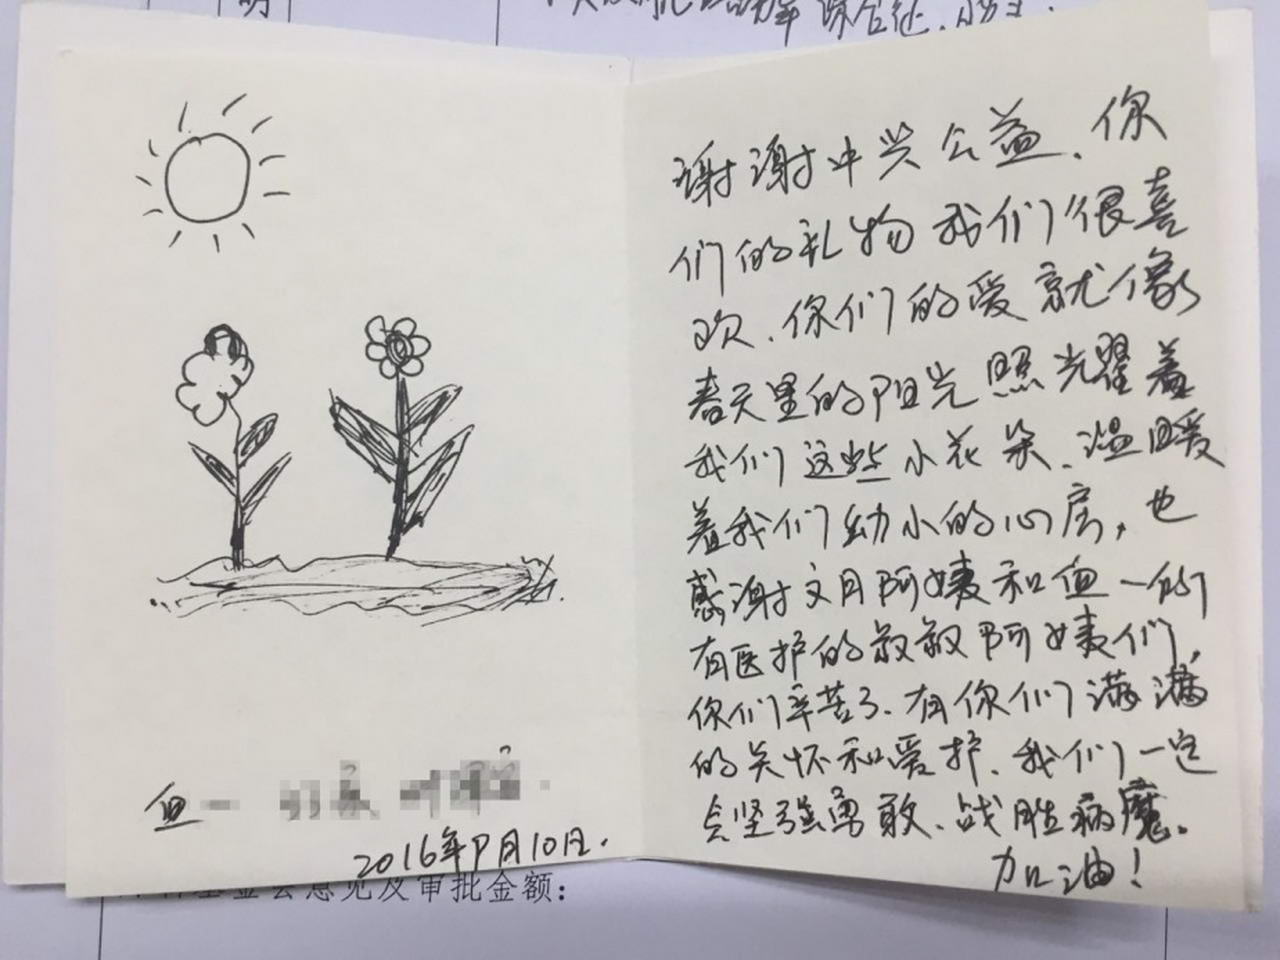 明
综合征
谢谢中兴公益、你
们的礼物我们很喜
欢、你们的爱就像
春天里的阳光照光耀着
我们这些小花朵、温暖
着我们幼小的心房，也
感谢文月阿姨和血一的
有医护的叔叔阿姨们，
你们辛苦了、有你们满满
的关怀和爱护、我们一定
会坚强勇敢、战胜病魔。
加油！
血一
2016年9月10日.
基金会意见及审批金额：